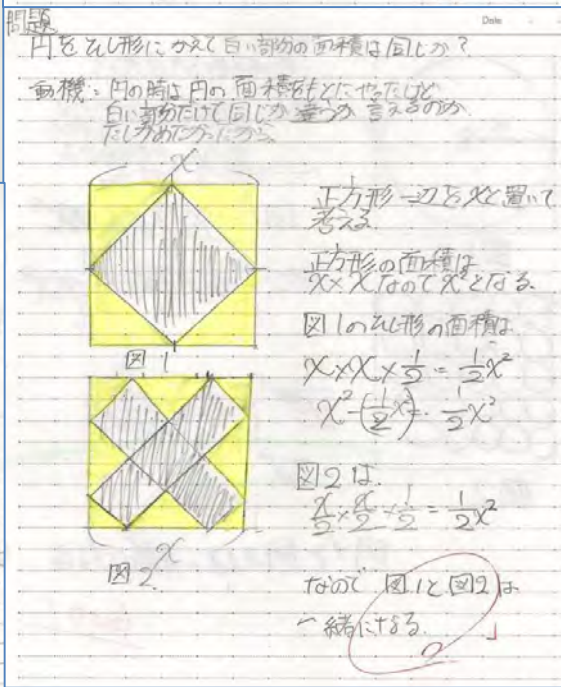 問題
Date
円をひし形にかえて白い部分の面積は同じか?
動機:円の時は円の面積をもとにやったけど
白い部分だけで同じか違うか言えるのか
たしかめたかったから
x
正方形一辺をxと置いて
考える.
正方形の面積は
x×xなのでx²となる.
図1のひし形の面積は
x×x×1/2=1/2x²
x²-(1/2x²)=1/2x²
図1
図2は
x/2×x/2×1/2=1/2x²
x
図2
なので図1と図2は
一緒になる.